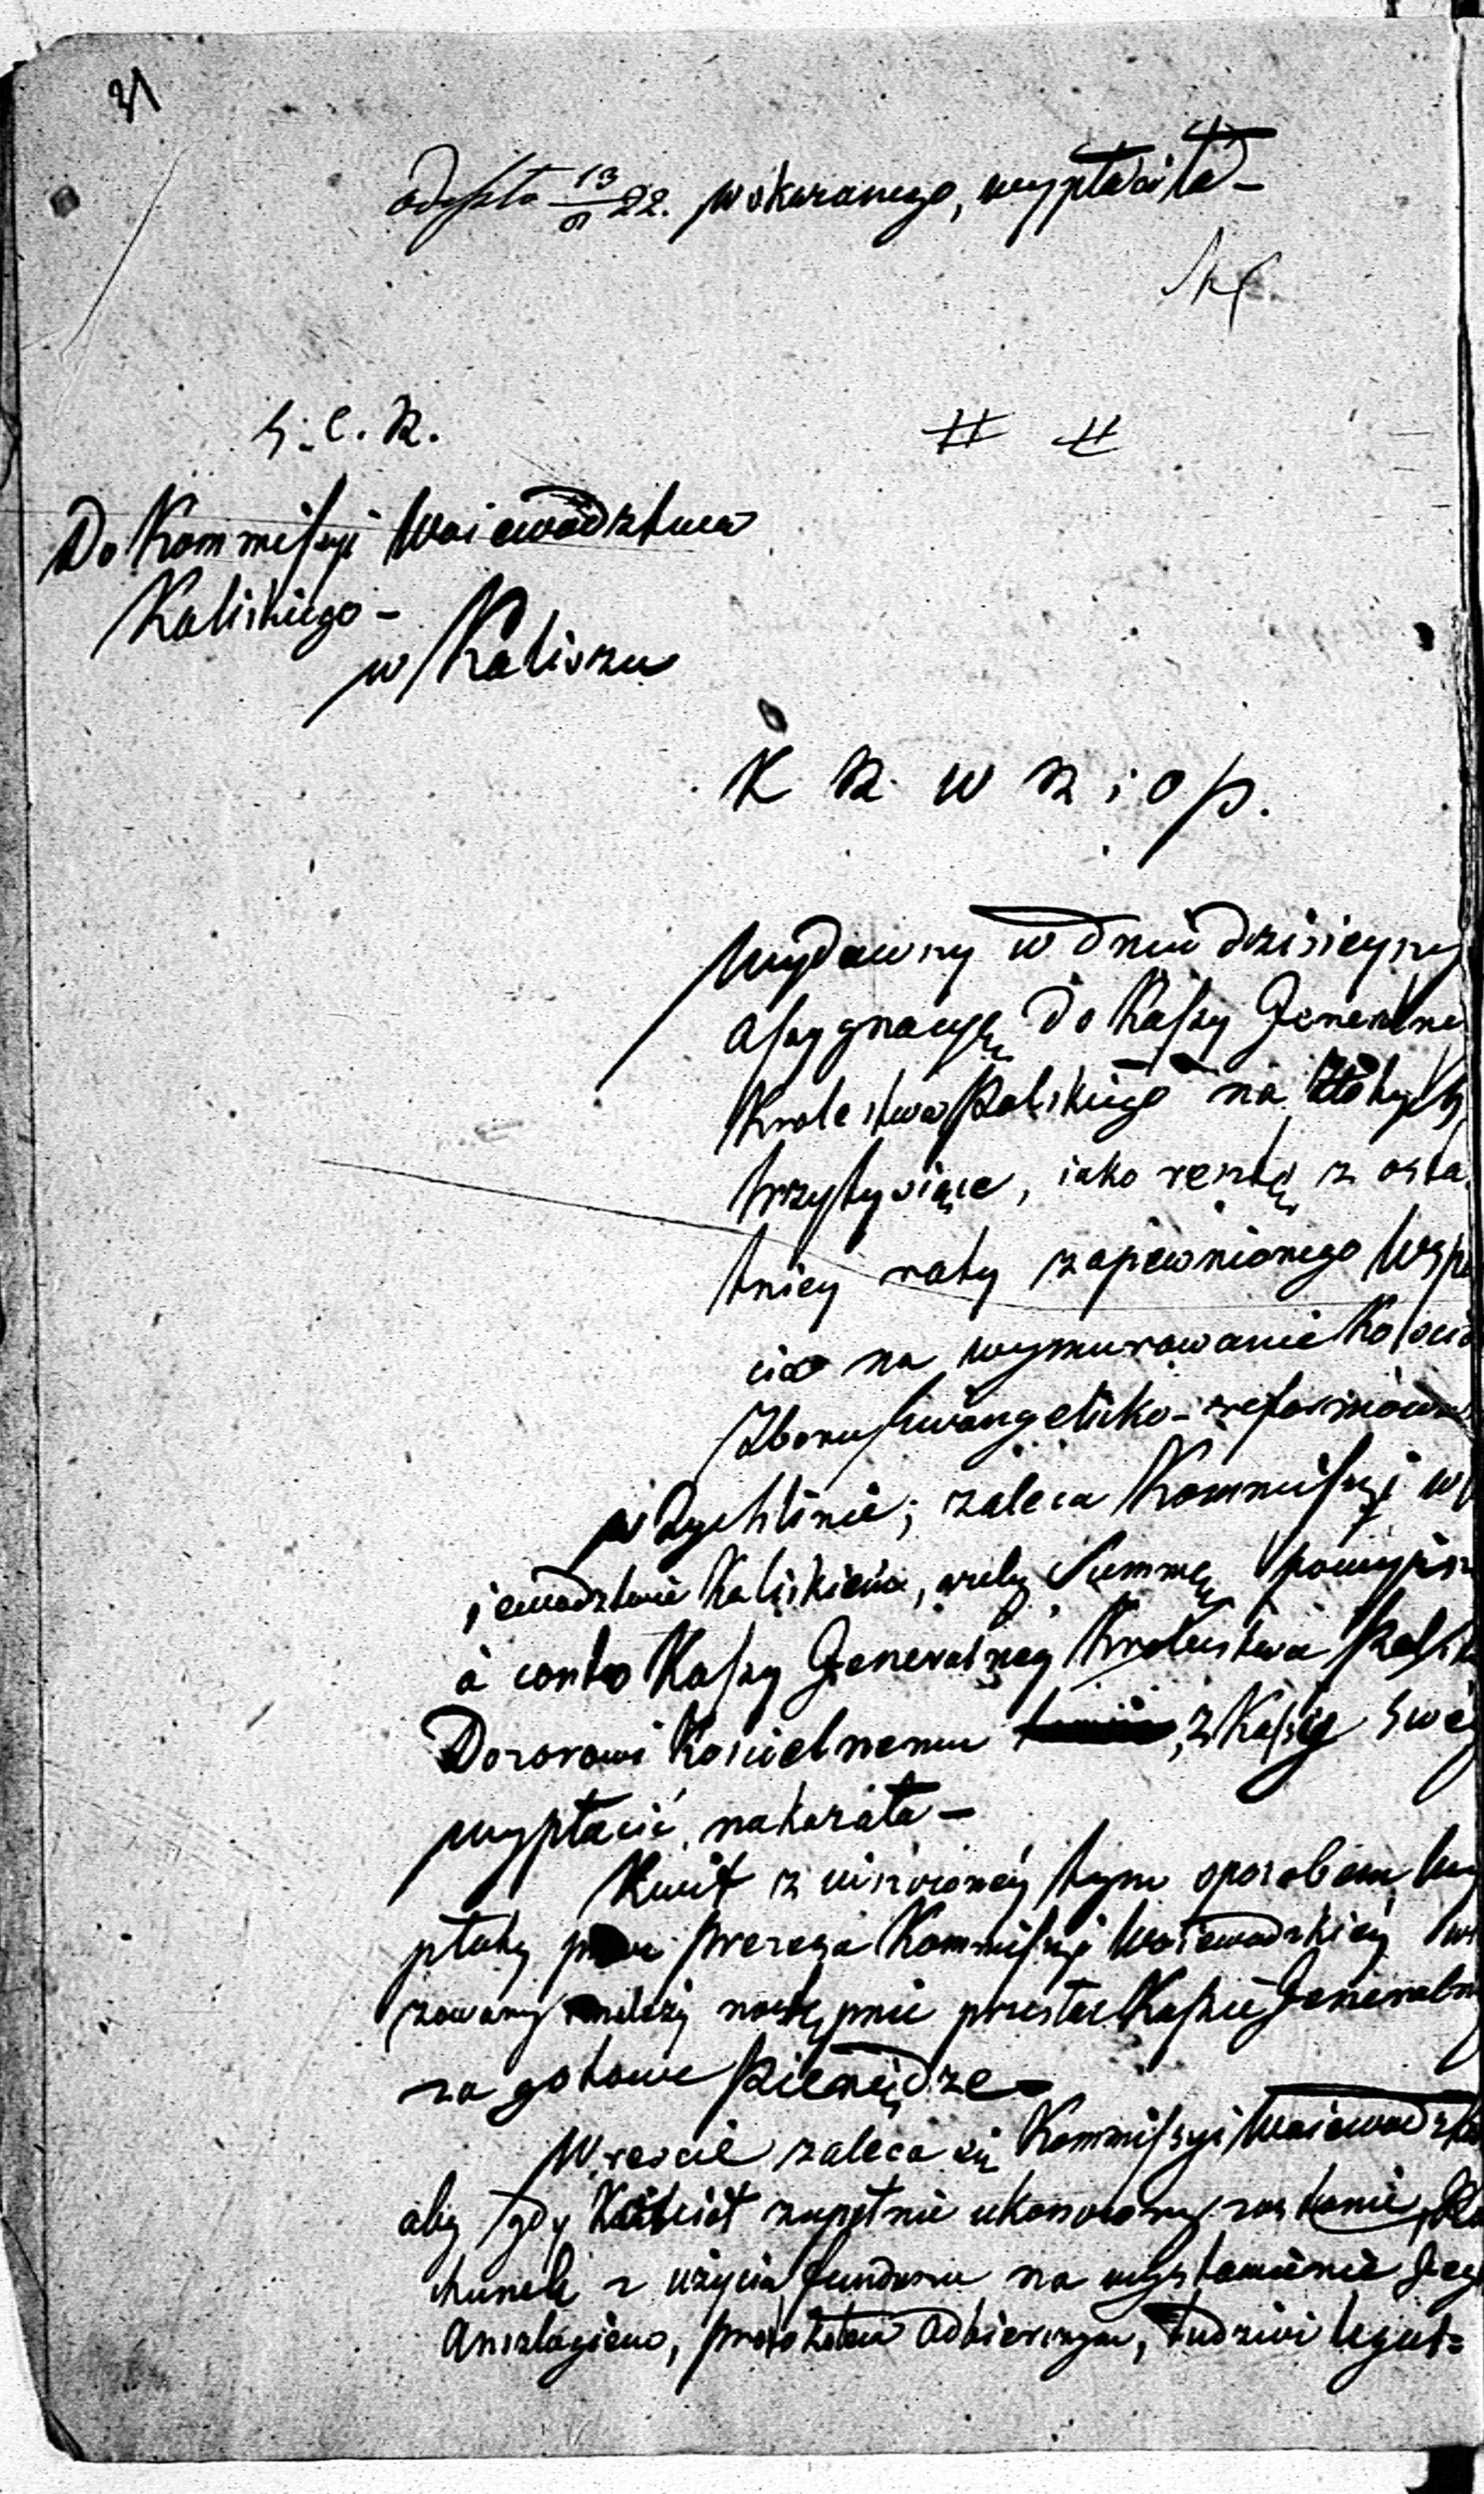 31
wskazanego, wypłaciła –
Do Kommissyi Woiewodztwa
Kaliskiego –
w Kaliszu
K R W R i O P.
Wydawszy w dniu dzisieyszy
assygnacyę do Kassy Generalne
Krolestwa Polskiego na Złotych
trzy tysiące, iako resztę z osta
tniey raty zapewnionego Wspa
cia na wymurowanie Kościo
Zboru Ewangelicko-reformowa
w Żychlinie; zaleca Kommissyi Wo
jewodztwa Kaliskiego, ażeby Summę powyższ
à conto Kassy Generalney Krolestwa Polski
Dozorowi Kościelnemu z Kassy swey
wypłacić nakazała –
Kwit z uiszczoney tym sposobem wy
płaty przez Prezesa Kommissyi Woiewodzkiey wi
zowany należy następnie przesłać Kassie Generalney
za gotowe Pieniądze –
W reście zaleca się Kommissyi Woiewodzki
aby gdy Kościół zupełnie ukończony zostanie, Ra
chunek z użycia funduszu na wystawienie Jeg
Anszlagiem, protokółem odbierczym, tudzież legit=